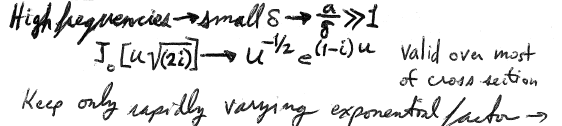 High frequencies → small δ → a/δ ≫ 1
J₀[u√(2i)] → u^-1/2 e^(1-i)u valid over most
of cross section
Keep only rapidly varying exponential factor →